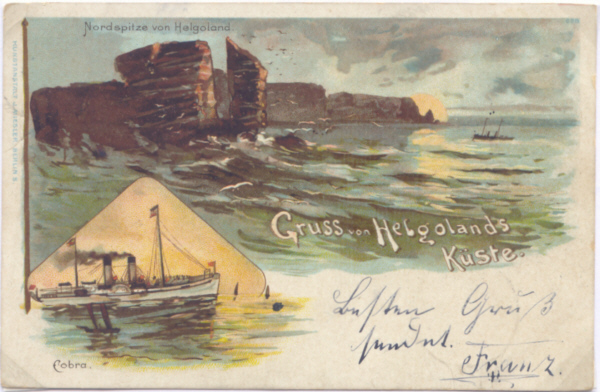 Nordspitze von Helgoland
Gruss von Helgolands
Küste.
Besten Gruß
sendet.
Franz.
Cobra.